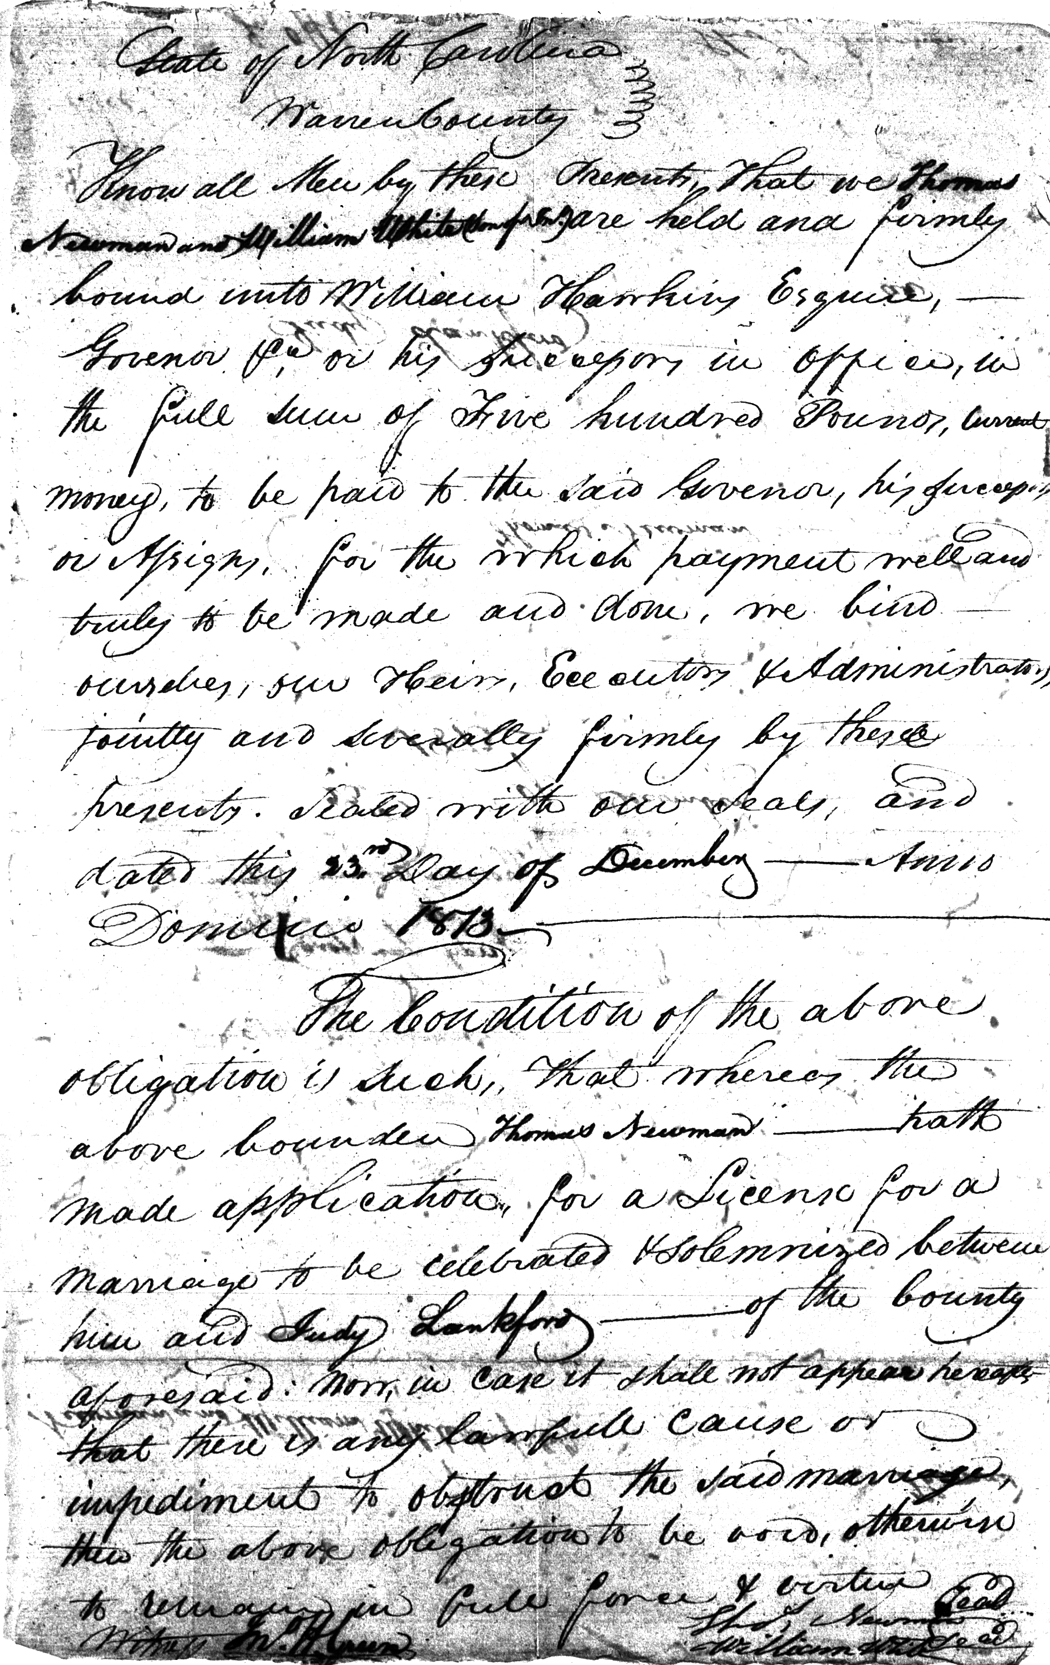 State of North Carolina
Warren County
Know all Men by these Presents, That we Thomas
Newman and William White are held and firmly
bound unto William Hawkins Esquire, —
Govenor &ca, or his Successors in office, in
the full sum of Five hundred Pounds, Current
money, to be paid to the said Govenor, his Successors
or Assigns, for the which payment well and
truly to be made and done, we bind —
ourselves, our Heirs, Executors & Administrators,
jointly and severally firmly by these
presents. Sealed with our seals, and
dated this 23rd Day of December — Anno
Domini 1813 —
The Condition of the above
obligation is such, That whereas the
above bounden Thomas Newman — hath
made application, for a License for a
marriage to be celebrated & solemnized between
him and Judy Lankford — of the County
aforesaid: Now, in case it shall not appear hereafter
that there is any lawfull cause or
impediment to obstruct the said marriage,
then the above obligation to be void, otherwise
to remain in full force & virtue
Thos Newman Seal
Witness
William White Seal